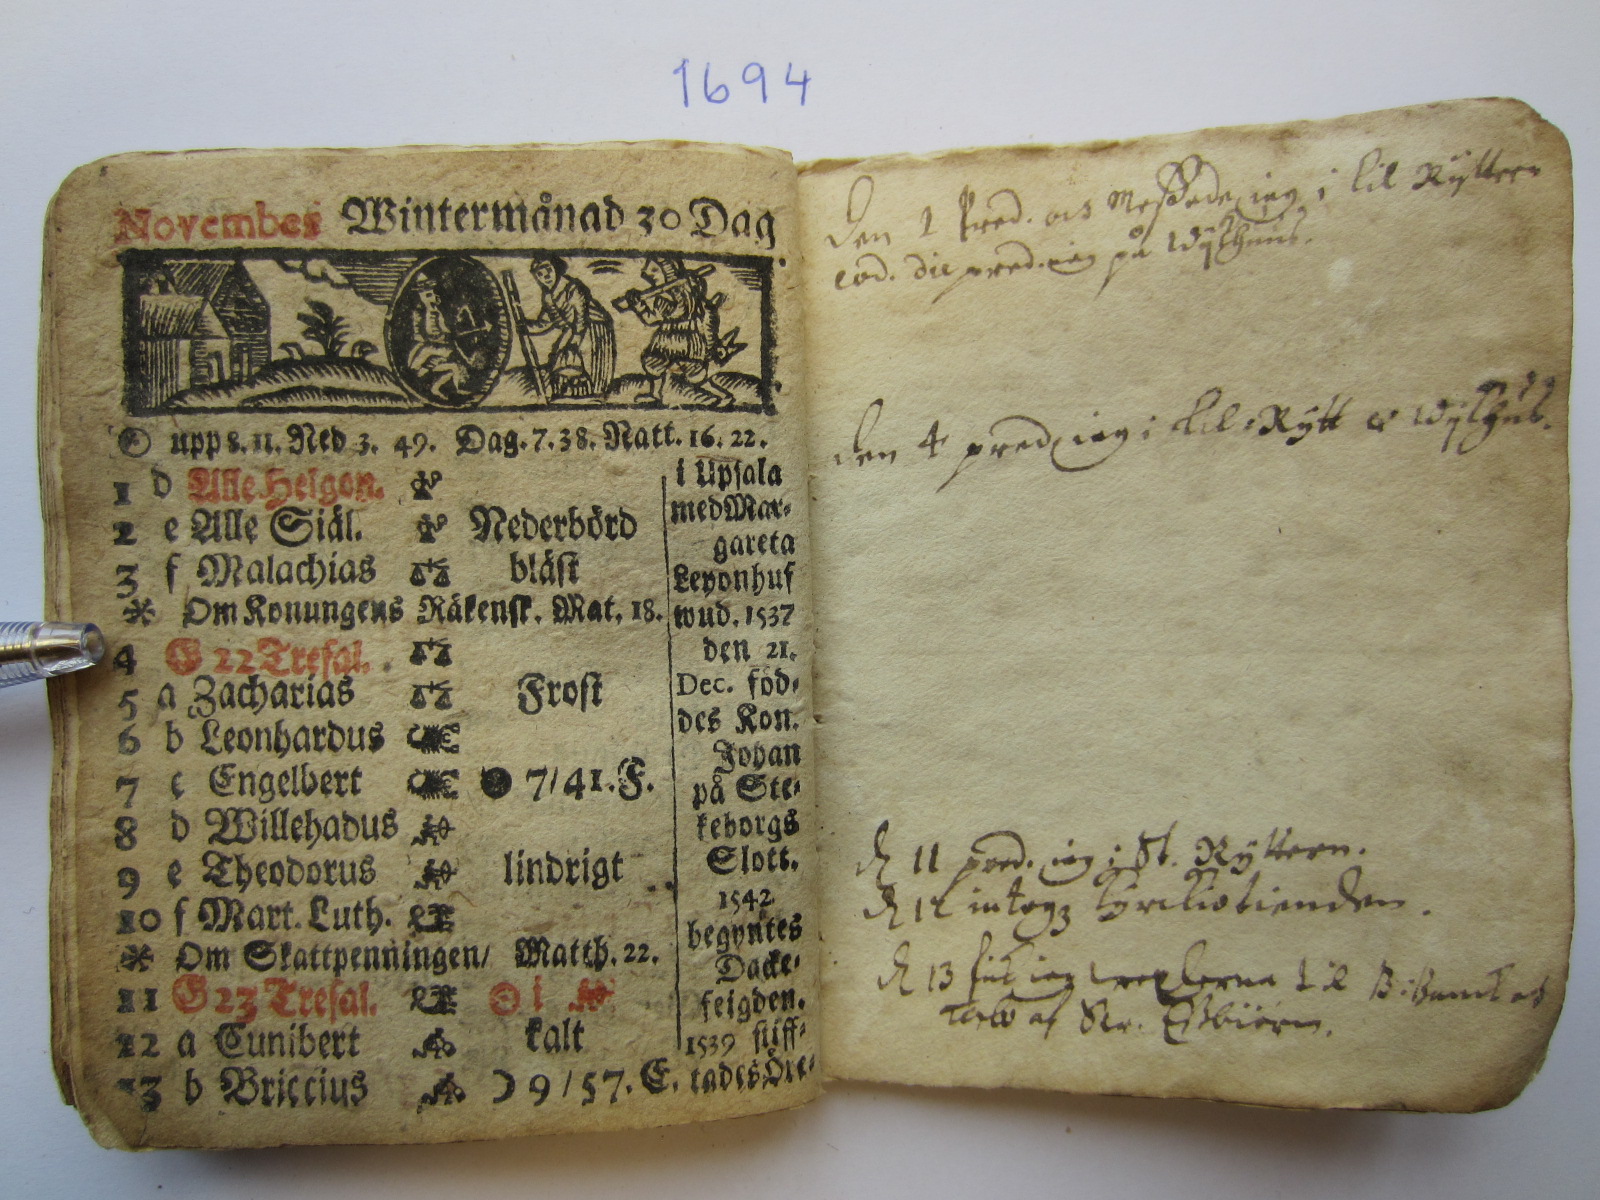 1694
November Wintermånad 30 Dag
upp 8. 11. Ned 3. 49. Dag. 7. 38. Natt. 16. 22.
1 d Alle Helgon.
2 e Alle Siäl. Nederbörd
3 f Malachias bläst
* Om Konungens Räkensk. Mat. 18.
4 G 22 Trefal.
5 a Zacharias Frost
6 b Leonhardus
7 c Engelbert 7/41. F.
8 d Willehadus
9 e Theodorus lindrigt
10 f Mart. Luth.
* Om Skattpenningen/ Matth. 22.
11 G 23 Trefal. i
12 a Cunibert kalt
13 b Briccius 9/57. E.
i Upsala
med Mar-
gareta
Leyonhuf
wud. 1537
den 21.
Dec. föd-
des Kon.
Johan
på Ste-
keborgs
Slott.
1542
begyntes
Dacke-
feigden.
1539 stiff-
tades Öre-
Den 1 pred. och Messade iag i lil Rÿttern
eod. die pred. iag på Wÿkhuus.
den 4 pred. iag i lil Rÿtt & Wÿkhus.
d 11 pred. iag i St. Rÿttern.
d 12 intogz kyrkiotienden.
d 13 iag til
af Hr. Esbiörn.